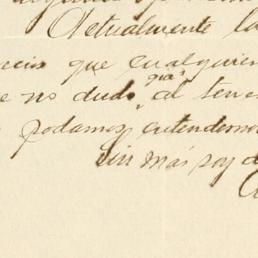 Actualmente la
que cualquier
que
e no dudo, al tener
podamos entendernos
Sin más soy d